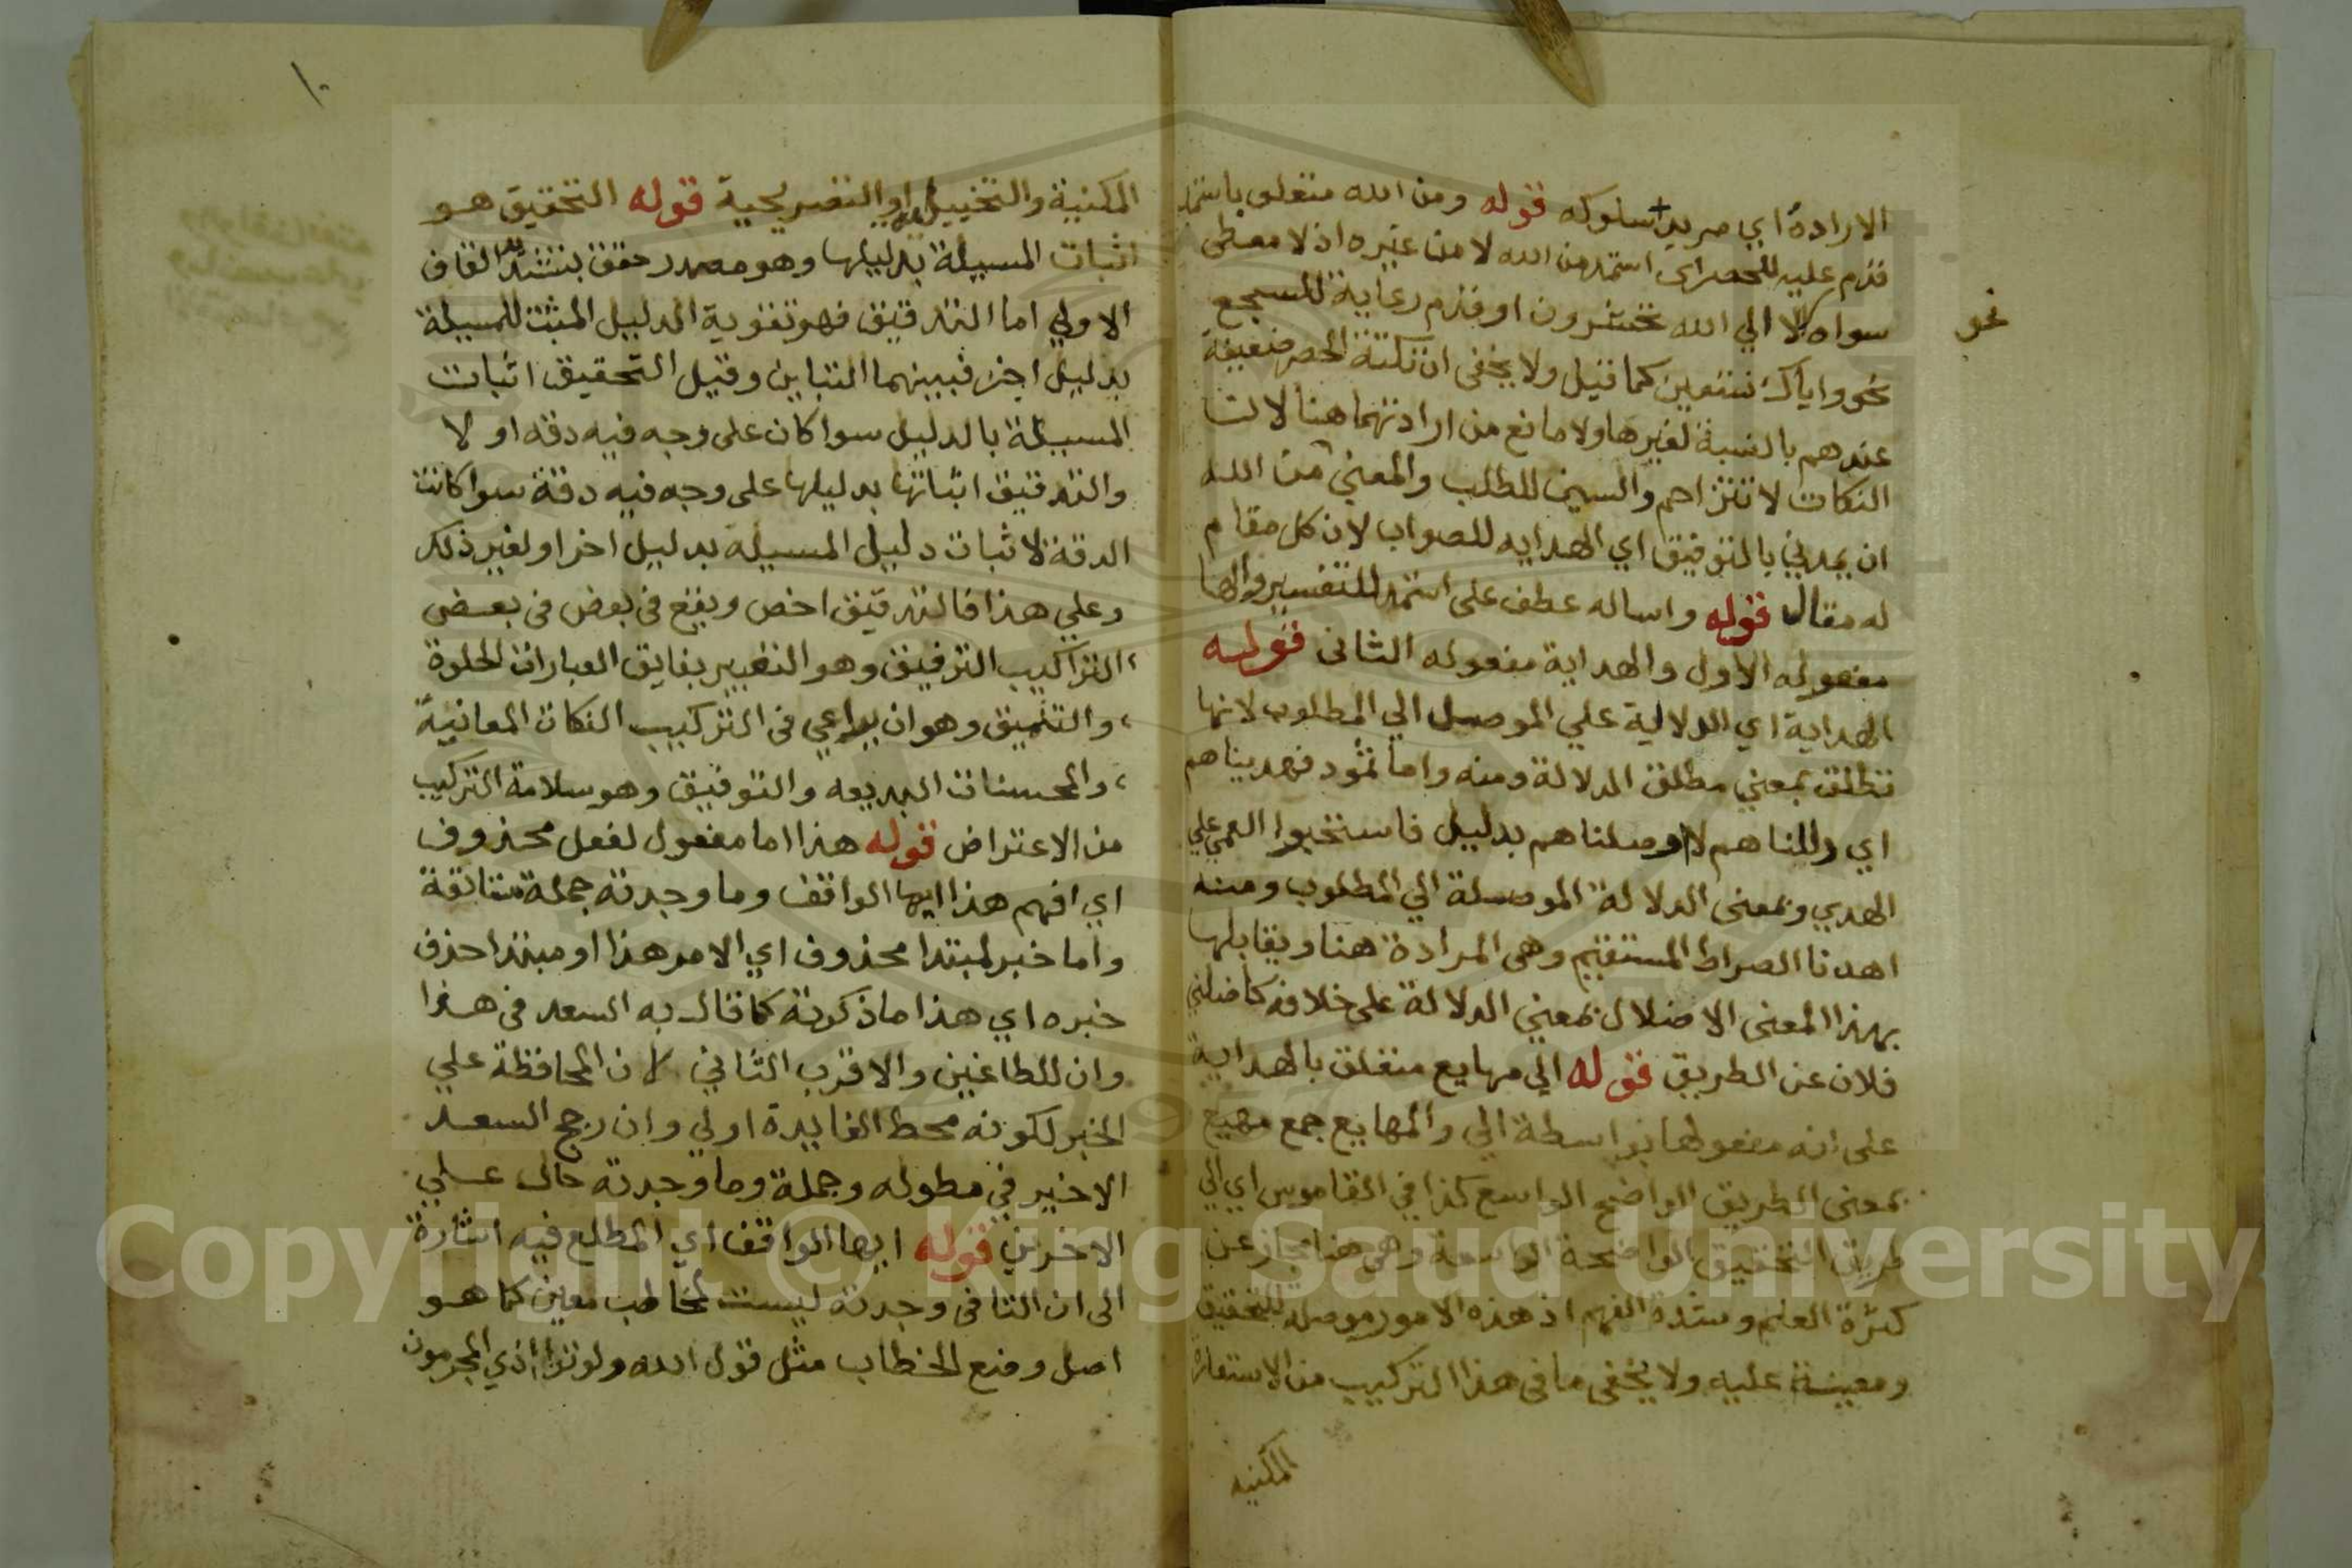 الارادة اي مريد سلوكه قوله ومن الله متعلق باستمد
قدم عليه للحصر اي استمد من الله لا من غيره اذ لا معطى
سواه لا الي الله تحشرون او قدم رعاية للسجع
نحو
نحو واياك نستعين كما قيل ولا يخفى ان نكتة الحصر ضعيفة
عندهم بالنسبة لغيرها ولا مانع من ارادتهما هنا لان
النكات لا تتزاحم والسين للطلب والمعني من الله
ان يمدني بالتوفيق اي الهدايه للصواب لان كل مقام
له مقال قوله واساله عطف على استمد للتفسير والها
مفعوله الاول والهداية مفعوله الثانى قوله
الهداية اي الدلالية علي الموصل الي المطلوب لانها
تطلق بمعني مطلق الدلالة ومنه واما ثمود فهديناهم
اي دللناهم لا وصلناهم بدليل فاستحبوا العمي علي
الهدي وبمعنى الدلالة الموصلة الي المطلوب ومنه
اهدنا الصراط المستقيم وهى المرادة هنا ويقابلها
بهذا المعنى الاضلال بمعني الدلالة على خلافه كاضلني
فلان عن الطريق قوله الي مهايع متعلق بالهداية
على انه مفعولها بواسطة الي والمهايع جمع مهيع
بمعنى الطريق الواضح الواسع كذا في القاموس اي الي
طريق التحقيق الواضحة الواسعة وهى هنا مجاز عن
كثرة العلم وشدة الفهم اذ هذه الامور موصلة للتحقيق
ومعينة عليه ولا يخفى ما فى هذا التركيب من الاستعارة
المكنيه
١٠
المكنية والتخييل او التصريحية قوله التحقيق هو
اثبات المسيلة بدليلها وهو مصدر حقق بتشديد القاف
الاولي اما التدقيق فهو تقوية الدليل المثبت للمسيلة
بدليل اخر فبينهما التباين وقيل التحقيق اثبات
المسيلة بالدليل سوا كان على وجه فيه دقه او لا
والتدقيق اثباتها بدليلها على وجه فيه دقة سوا كانت
الدقة لاثبات دليل المسيلة بدليل اخر او لغير ذلك
وعلي هذا فالتدقيق اخص ويقع فى بعض فى بعض
التراكيب الترقيق وهو التعبير بفايق العبارات الحلوة
والتنميق وهو ان يراعي فى التركيب النكات المعانية
والمحسنات البديعه والتوفيق وهو سلامة التركيب
من الاعتراض قوله هذا اما مفعول لفعل محذوف
اي افهم هذا ايها الواقف وما وجدته جملة متانقة
واما خبر لمبتدا محذوف اي الامر هذا او مبتدا حذف
خبره اي هذا ما ذكرته كما قال به السعد فى هذا
وان للطاغين والاقرب الثاني لان المحافظة علي
الخبر لكونه محط الفايدة اولي وان رجح السعد
الاخير في مطوله وجملة وما وجدته حال علي
الاخرين قوله ايها الواقف اي المطلع فيه اشارة
الى ان التا فى وجدته ليست لمخاطب معين كما هو
اصل وضع الخطاب مثل قول الله ولو ترا اذي المجرمون
Copyright © King Saud University